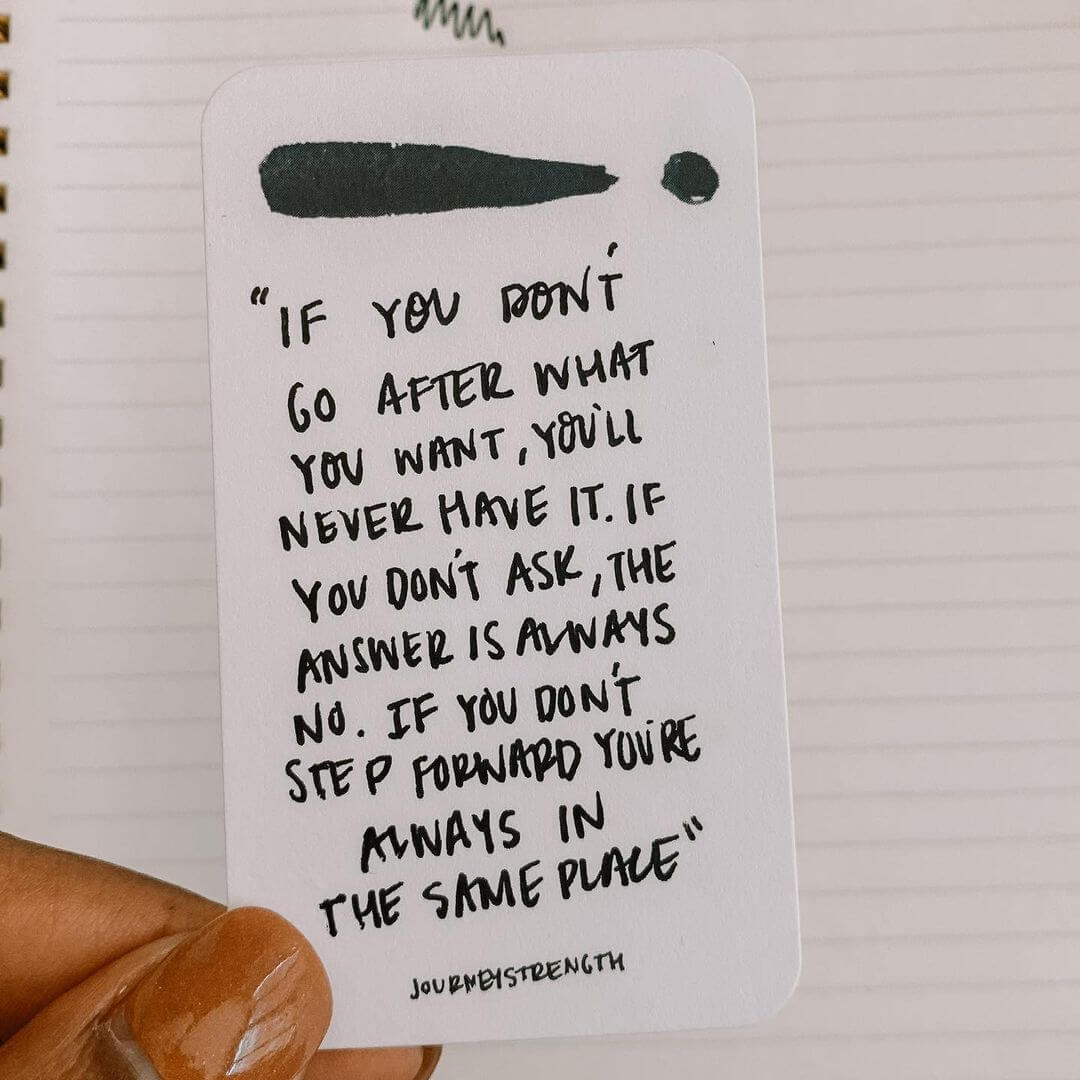 "IF YOU DON'T
GO AFTER WHAT
YOU WANT, YOU'LL
NEVER HAVE IT. IF
YOU DON'T ASK, THE
ANSWER IS ALWAYS
NO. IF YOU DON'T
STEP FORWARD YOU'RE
ALWAYS IN
THE SAME PLACE"
JOURNEYSTRENGTH